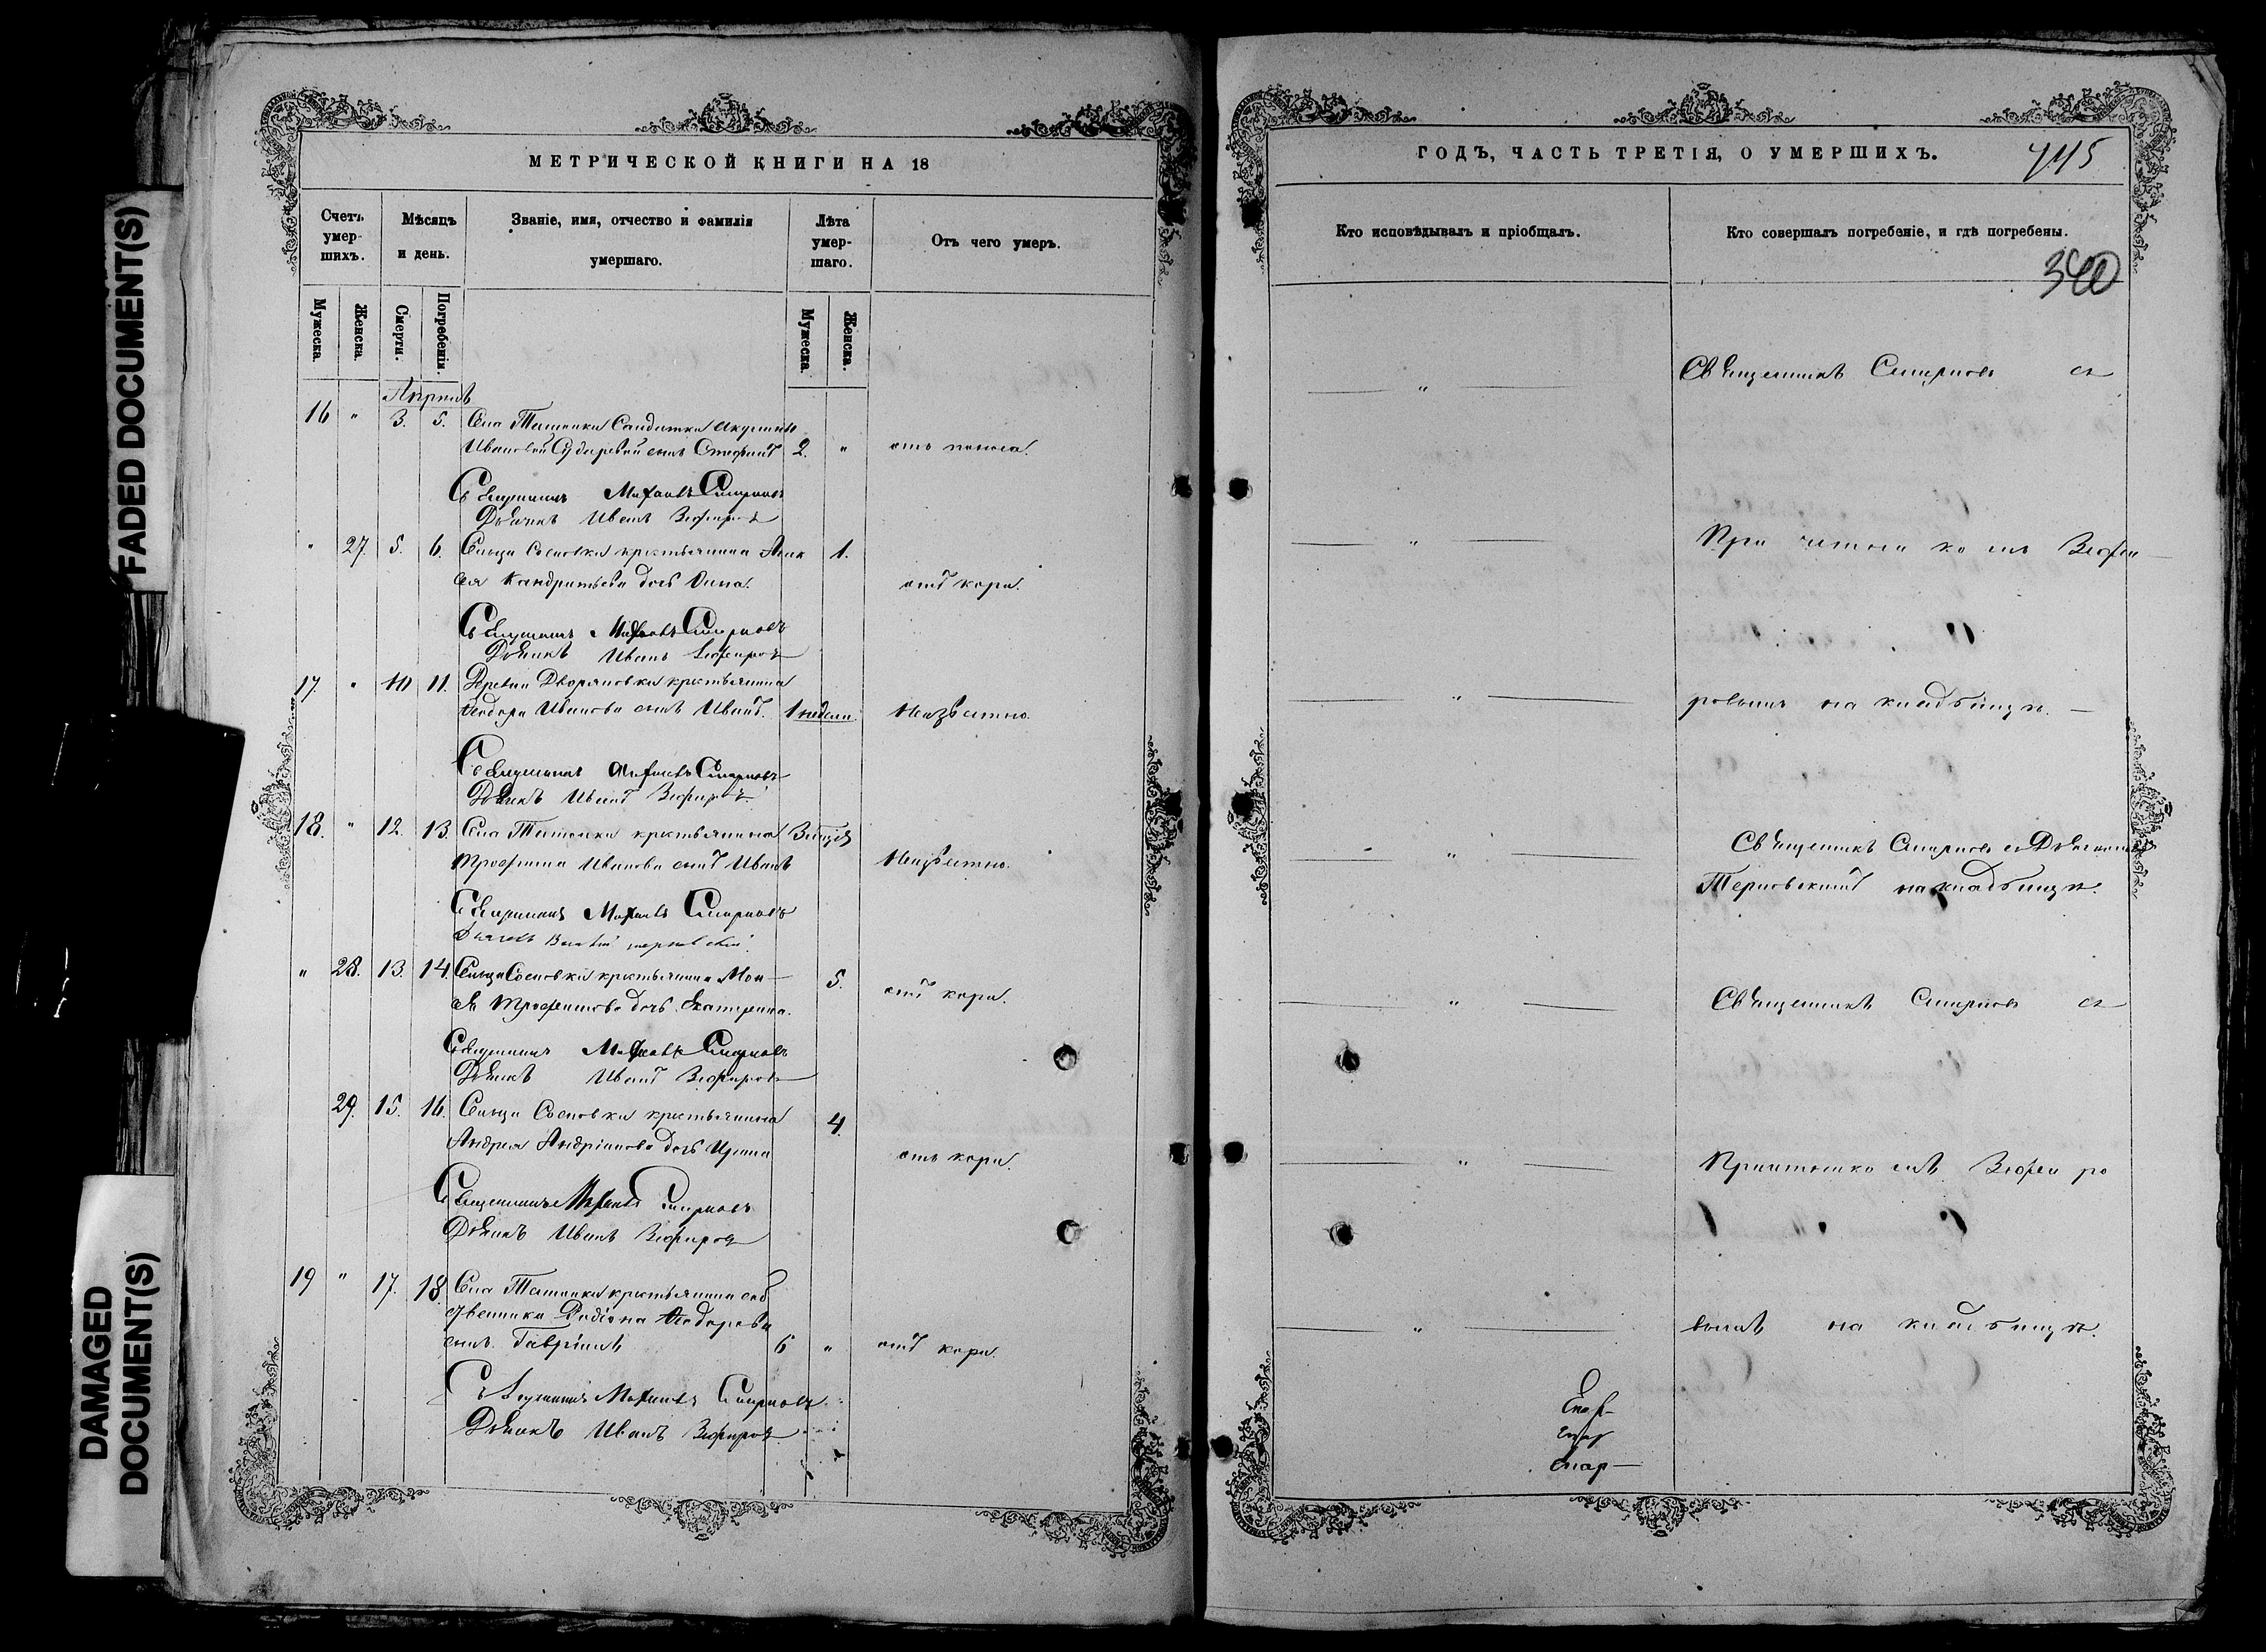 FADED DOCUMENT(S)
DAMAGED
DOCUMENT(S)
МЕТРИЧЕСКОЙ КНИГИ НА 18
Счетъ
умер-
шихъ.
Мѣсяцъ
и день.
Званіе, имя, отчество и фамилія
умершаго.
Лѣта
умер-
шаго.
Отъ чего умеръ.
Мужеска.
Женска.
Смерти.
Погребенія.
Мужеска.
Женска.
Апрель
16 " 3. 5. Села солдатки Акулины
Ивановой сынъ 2. " отъ поноса.
Священникъ Михаилъ Смирновъ
Дьячекъ Иванъ Зефировъ
" 27. 5. 6. Сельца Сосновки крестьянина Алек 1.
сея Кондратьева дочь отъ кори.
Священникъ Михаилъ Смирновъ
Дьячекъ Иванъ Зефировъ
17. " 10 11. Деревни Дворяновки крестьянина
Ѳеодора Иванова сынъ Иванъ. 1 недели. Неизвѣстно.
Священникъ Михаилъ Смирновъ
Дьячекъ Иванъ Зефировъ.
18. " 12. 13. Села крестьянина
Трофима Иванова сынъ Иванъ Неизвѣстно.
Священникъ Михаилъ Смирновъ
Терновскій
" 28. 13. 14. Сельца Сосновки крестьянина Мои- 5.
сея Трофимова дочь Екатерина. отъ кори.
Священникъ Михаилъ Смирновъ
Дьячекъ Иванъ Зефировъ
29. 15. 16. Сельца Сосновки крестьянина 4.
Андрея Андріанова дочь Ирина отъ кори.
Священникъ Михаилъ Смирновъ
Дьячекъ Иванъ Зефировъ
19 " 17. 18. Села крестьянина соб
ственника Родіона Ѳеодорова
сынъ Гавріилъ 6 " отъ кори.
Священникъ Михаилъ Смирновъ
Дьячекъ Иванъ Зефировъ
ГОДЪ, ЧАСТЬ ТРЕТІЯ, О УМЕРШИХЪ.
340
Кто исповѣдывалъ и пріобщалъ.
Кто совершалъ погребеніе, и гдѣ погребены.
" Священникъ Смирновъ съ
" Зефи
" ровымъ на кладбищѣ.
" Священникъ Смирновъ съ Дьячкомъ
Терновскимъ на кладбищѣ.
" Священникъ Смирновъ съ
" Зефи ро
" вымъ на кладбищѣ.